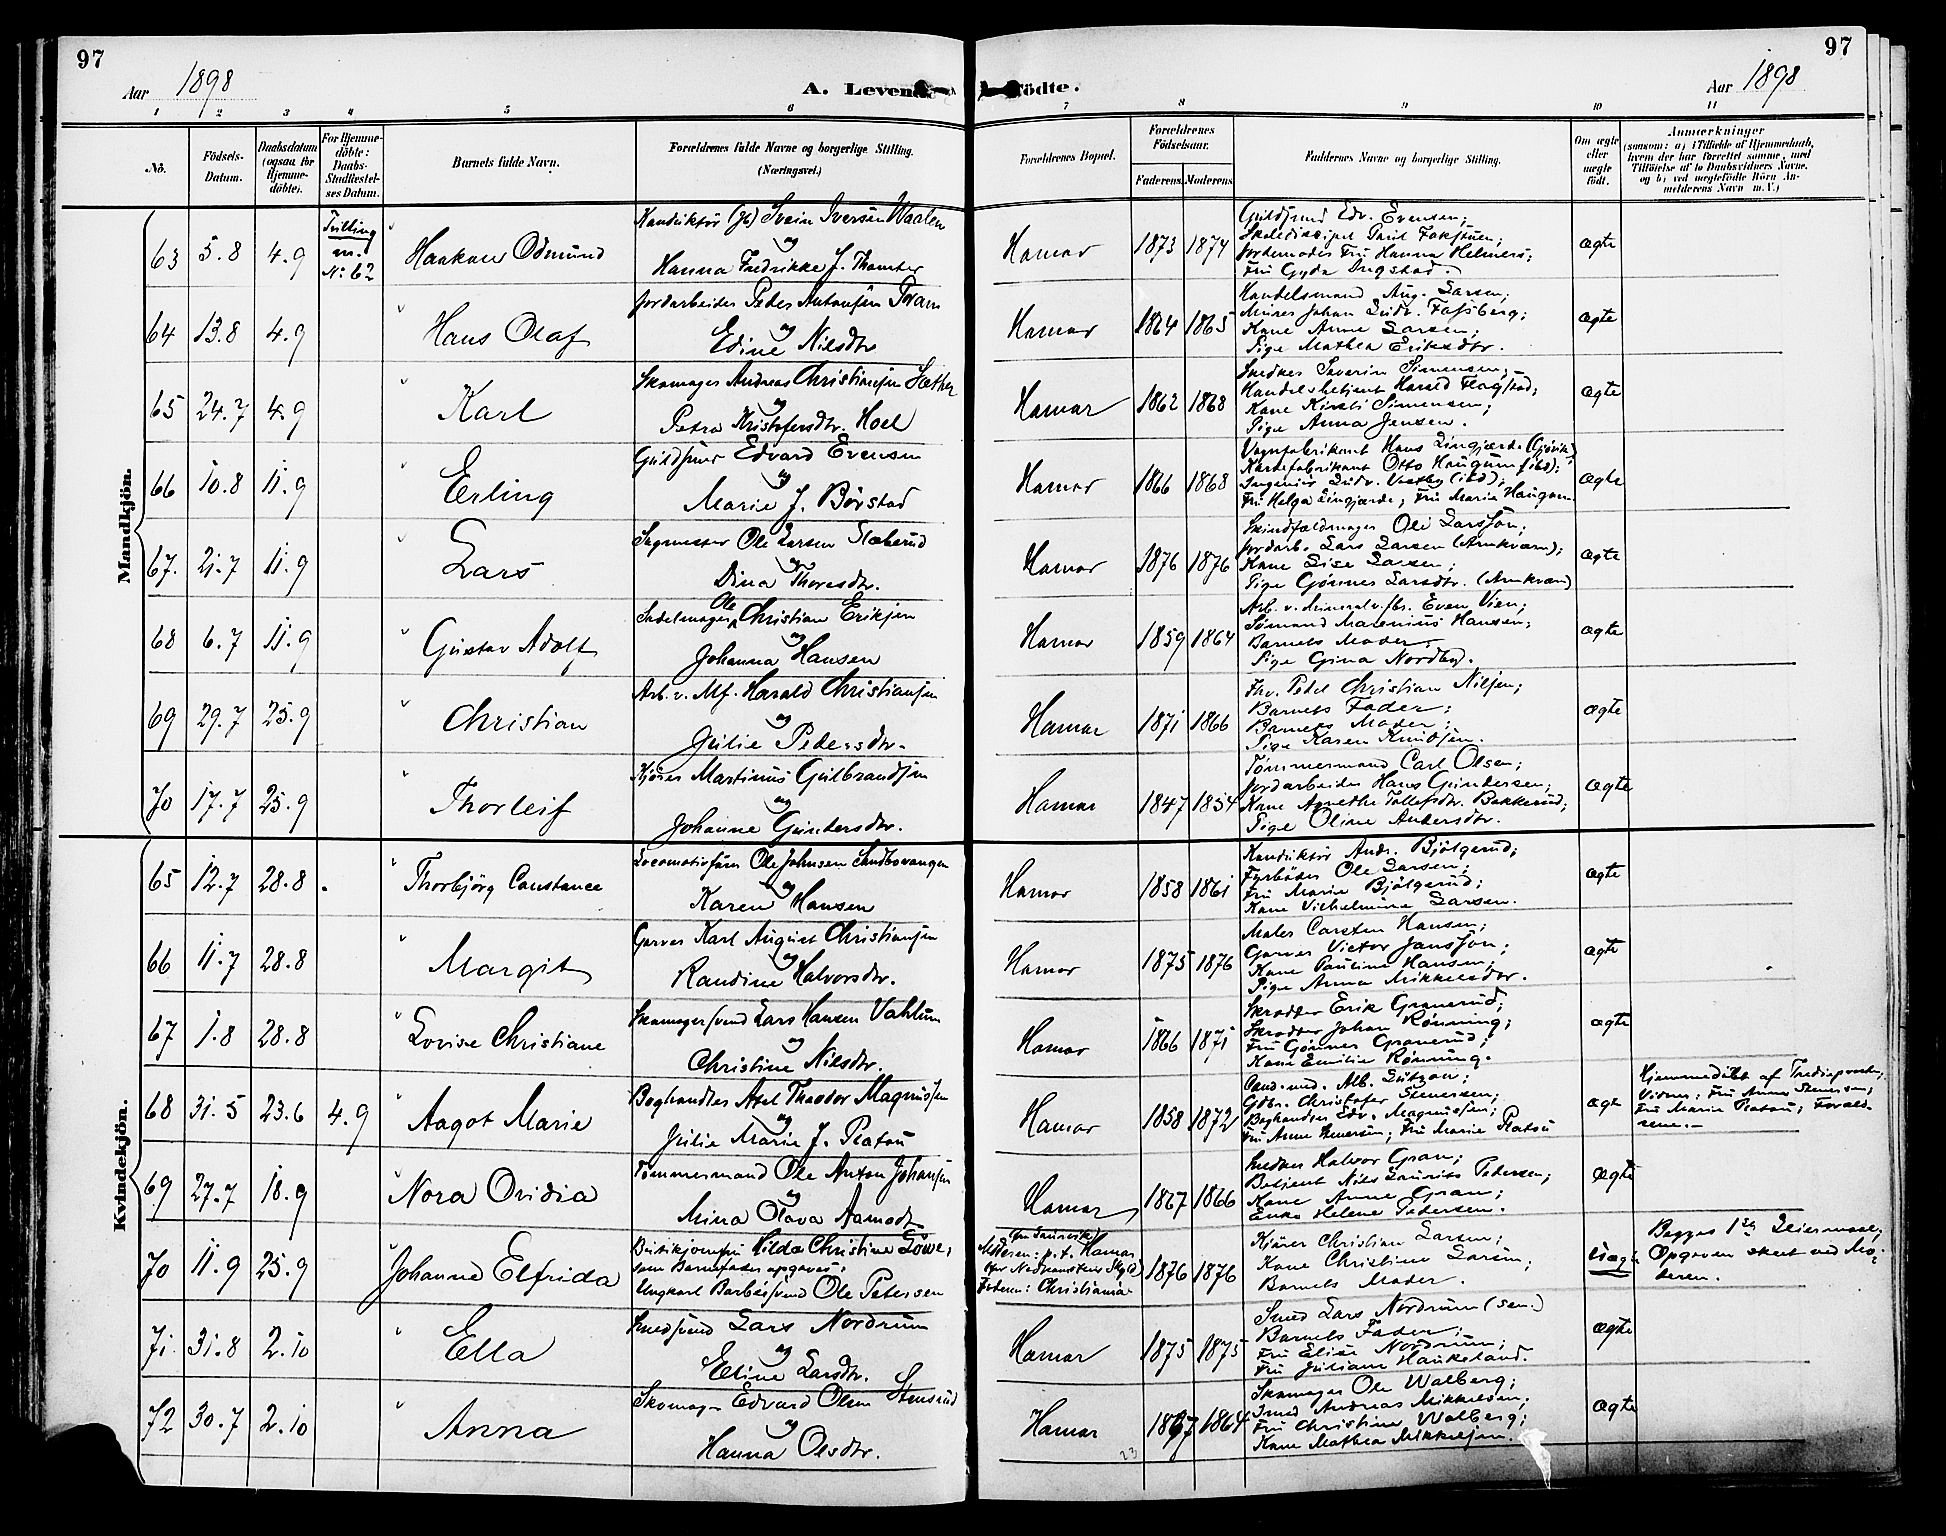 97
97
Aar 1898
A. Levende
Fødte.
Aar 1898
1 2 3 4 5 6 7 8 9 10 11
No.
Fødsels-
Datum.
Daabsdatum
(ogsaa for
Hjemme-
døbte).
For Hjemme-
døbte:
Daabs-
Stadfæstel-
ses Datum.
Barnets fulde Navn.
Forældrenes fulde Navne og borgerlige Stilling.
(Næringsvei.)
Forældrenes Bopæl.
Forældrenes
Fødselsaar.
Faderens. Moderens.
Faddernes Navne og borgerlige Stilling.
Om ægte
eller
uægte
født.
Anmærkninger
(saasom: a) i Tilfælde af Hjemmedaab,
hvem der har forrettet samme, med
Tilføielse af to Daabsvidners Navne,
og b) ved uægtefødte Børn An-
melderens Navn m. V.)
Mandkjön.
63 5.8 4.9
Tvilling
m.
No. 62
Haakon Odmund
Konduktør (Jb) Svein Iversen Waalen
og
Hanna Fredrikke J. Thomter
Hamar
1873 1874
Guldsmed Edv. Evensen;
Skoledisipel Toril Fokstuen;
Jordemoder Fru Hanna Helmers;
Fru Gyda Ingstad.
ægte
64 13.8 4.9
Hans Olaf
Jordarbeider Peder Antonsen Fram
og
Edine Nilsdtr
Hamar
1864 1865
Handelsmand Aug. Larsen;
Murer Johan Ludv. Fossberg;
Kone Anne Larsen;
Pige Mathea Eriksdtr.
ægte
65 24.7 4.9
Karl
Skomager Andreas Christiansen Sæther
og
Petra Kristofersdtr. Hoel
Hamar
1862 1868
Snedker Severin Simensen;
Handelsbetjent Harald Flagstad;
Kone Kirsti Simensen;
Pige Anna Jensen.
ægte
66 10.8 11.9
Erling
Guldsmed Edvard Evensen
og
Marie J. Børstad
Hamar
1866 1868
Vognfabrikant Hans Lingjærde (Gjøvik);
Kardefabrikant Otto Haugum (ibd);
Ingeniør Ludv. Vestby (ibd);
Fru Helga Lingjærde; Fru Maria Haugom
ægte
67. 21.7 11.9
Lars
Sagmester Ole Larsen Slæberud
og
Dina Thoresdtr.
Hamar
1876 1876
Skindfældmager Ole Larsson;
Jordarb. Lars Larsen (Arnkværn);
Kone Lise Larsen;
Pige Gønner Larsdtr. (Arnkværn)
ægte
68 6.7 11.9
Gustav Adolf
Sadelmager Ole Christian Eriksen
og
Johanna Hansen
Hamar
1859 1864
Arb. v. Mineralv.fbr. Even Vien;
Sømand Marenius Hansen;
Barnets Moder;
Pige Gina Nordby.
ægte
69 29.7 25.9
Christian
Arb. v. Mf. Harald Christiansen
og
Julie Pedersdtr.
Hamar
1871 1866
Fhv. Pedel Christian Nilsen;
Barnets Fader;
Barnets Moder;
Pige Karen Knudsen.
ægte
70 17.7 25.9
Thorleif
Kjører Martinus Gulbrandsen
og
Johanne Gundersdtr.
Hamar
1847 1854
Tømmermand Carl Olsen;
Jordarbeider Hans Gundersen;
Kone Agnethe Tollefsdtr. Bakkerud;
Pige Oline Andersdtr.
ægte
Kvindekjön.
65 12.7 28.8
Thorbjörg Constance
Locomotivfører Ole Johnsen Sandbovangen
og
Karen Hansen
Hamar
1858 1861
Konduktør Andr. Bjölgerud;
Fyrbøder Ole Larsen;
Fru Marie Bjölgerud;
Kone Vilhelmine Larsen.
ægte
66 11.7 28.8
Margit
Garver Karl August Christiansen
og
Randine Halvorsdtr.
Hamar
1875 1876
Maler Carsten Hansen;
Garver Victor Jansson;
Kone Pauline Hansen;
Pige Anna Mikkelsdtr.
ægte
67 1.8 28.8
Lovise Christiane
Skomagersvend Lars Hansen Vahlum
og
Christine Nilsdtr.
Hamar
1866 1871
Skrædder Erik Granerud;
Skrædder Johan Rønning;
Fru Gønner Granerud;
Kone Emilie Rønning.
ægte
68 31.5 23.6 4.9
Aagot Marie
Boghandler Axel Theodor Magnussen
og
Julie Marie J. Platou
Hamar
1858 1872
Cand. med. Alb. Lützow;
Gdbr. Christofer Stenersen;
Boghandler Edv. Magnussen;
Fru Anne Stenersen; Fru Marie Platou
ægte
Hjemmedøbt af Trediepræsten;
Vidner: Fru Anne Stenersen;
Fru Marie Platou; Foræld-
rene.
69 27.7 18.9
Nora Ovidia
Tømmermand Ole Anton Johansen
og
Mina Olava Aamodt
Hamar
1867 1866
Snedker Halvor Gran;
Betjent Nils Laurits Pedersen;
Kone Anne Gran;
Enke Helene Pedersen.
ægte
70 11.9 25.9
Johanne Elfrida
Butikjomfru Hilda Christine Löwe;
som Barnefader opgaves:
Ungkarl Barbersvend Ole Petersen
Moderen: p.t. Hamar
Faderen: Christiania
1876 1876
Kjører Christian Larsen;
Kone Christine Larsen;
Barnets Moder.
uægte
Begges 1ste Leiermaal;
Opgaven skeet ved Mo-
deren.
71. 31.8 2.10
Ella
Smedsvend Lars Nordrum
og
Eline Larsdtr.
Hamar
1875 1875
Smed Lars Nordrum (sen.)
Barnets Fader;
Fru Elise Nordrum;
Fru Juliane Haukeland.
ægte
72 30.7 2.10
Anna
Skomager Edvard Olsen Stensrud
og
Hanna Olsdtr.
Hamar
23
1867 1864
Skomager Ole Walberg;
Smed Andreas Mikkelsen;
Fru Christine Walberg;
Kone Mathea Mikkelsen.
ægte